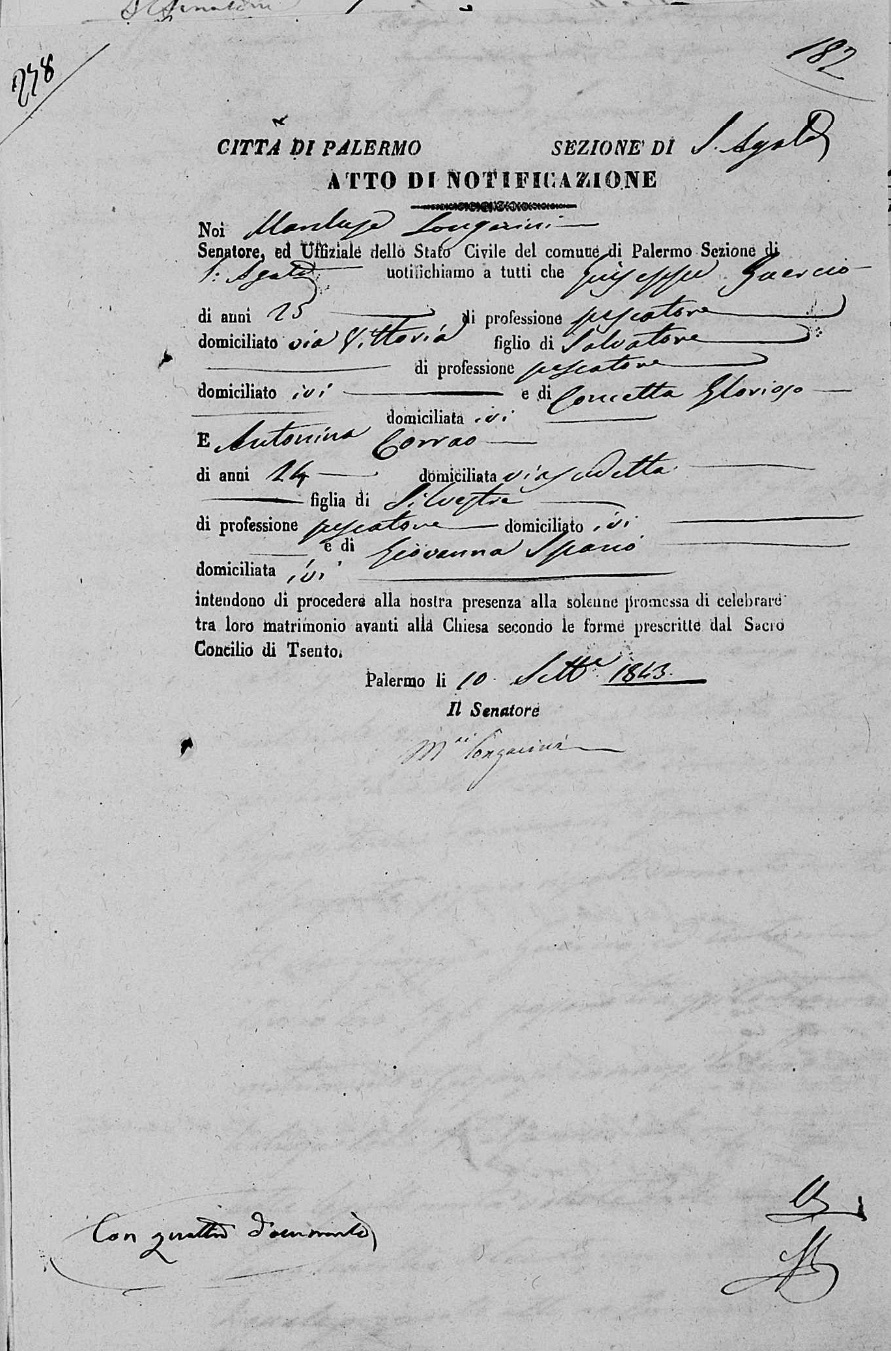 278
182
CITTÀ DI PALERMO SEZIONE DI S. Agata
ATTO DI NOTIFICAZIONE
Noi Longarini
Senatore, ed Uffiziale dello Stato Civile del comune di Palermo Sezione di
S. Agata notifichiamo a tutti che Giuseppe Guercio
di anni 25 di professione pescatore
domiciliato via Vittoria figlio di Salvatore
di professione pescatore
domiciliato ivi e di Concetta Glorioso
domiciliata ivi
E Antonina Corrao
di anni 24 domiciliata via sudetta
figlia di Silvestre
di professione pescatore domiciliato ivi
e di Giovanna Spanò
domiciliata ivi
intendono di procedere alla nostra presenza alla solenne promessa di celebrare
tra loro matrimonio avanti alla Chiesa secondo le forme prescritte dal Sacro
Concilio di Tsento.
Palermo li 10 Sett.e 1843.
Il Senatore
Longarini
Con quattro documenti